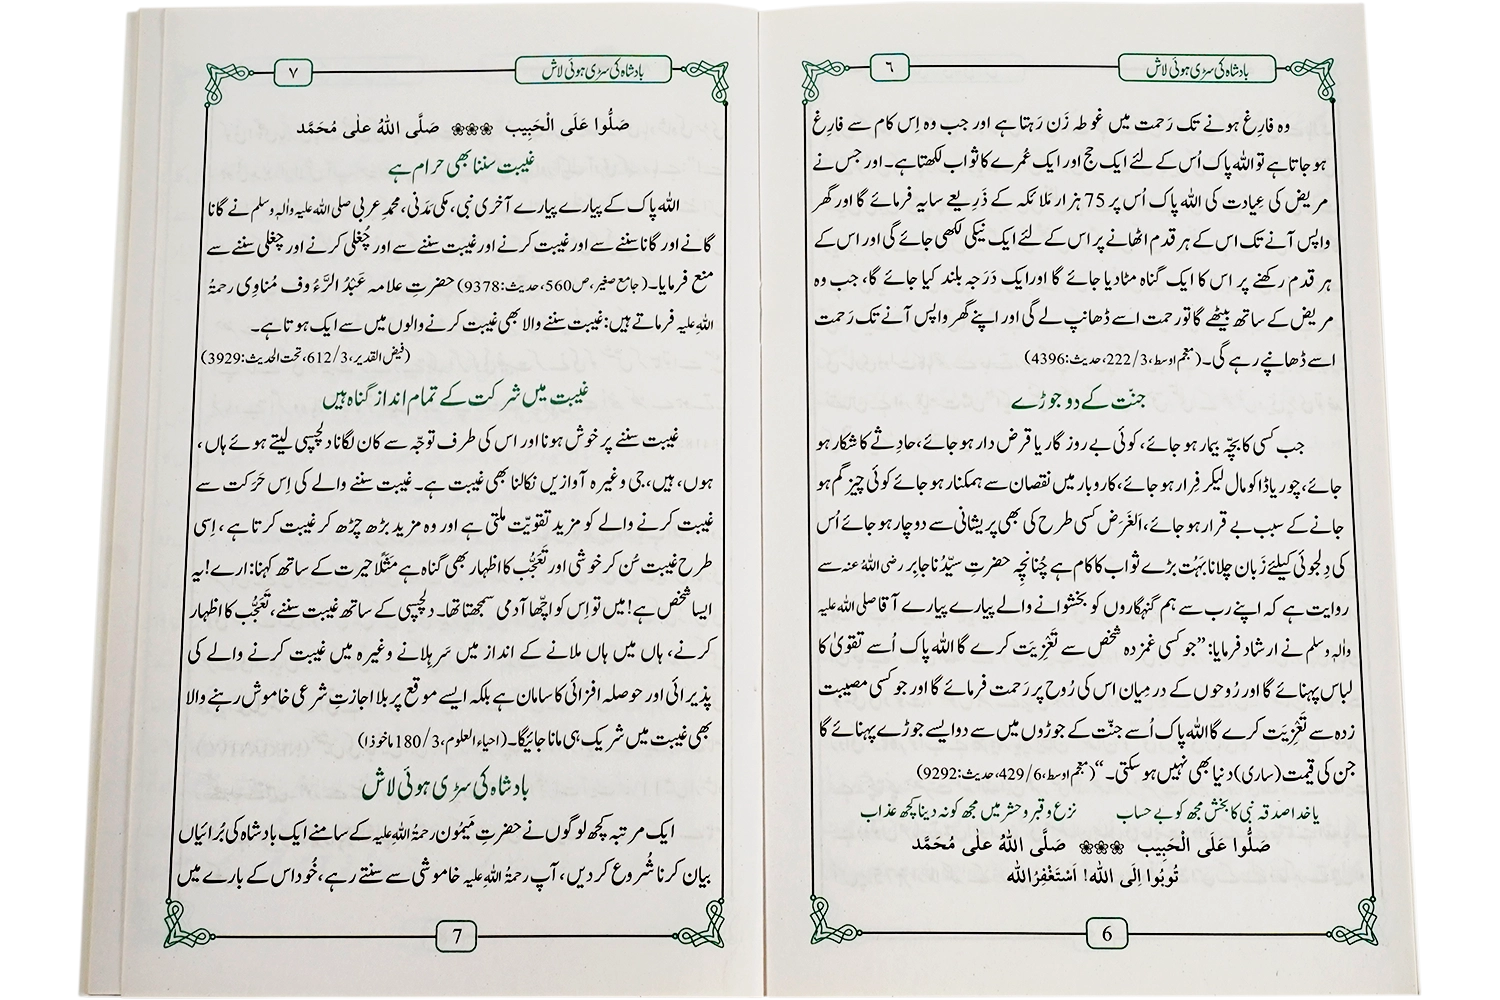 بادشاہ کی سڑی ہوئی لاش
٦
وہ فارِغ ہونے تک رَحمت میں غوطہ زَن رَہتا ہے اور جب وہ اِس کام سے فارِغ
ہو جاتا ہے تو اللہ پاک اُس کے لئے ایک حج اور ایک عُمرے کا ثواب لکھتا ہے۔ اور جس نے
مریض کی عِیادت کی اللہ پاک اُس پر 75 ہزار مَلائکہ کے ذَرِیعے سایہ فرمائے گا اور گھر
واپس آنے تک اس کے ہر قدم اٹھانے پر اس کے لئے ایک نیکی لکھی جائے گی اور اس کے
ہر قدم رکھنے پر اس کا ایک گناہ مٹا دیا جائے گا اور ایک دَرَجہ بلند کیا جائے گا، جب وہ
مریض کے ساتھ بیٹھے گا تو رحمت اسے ڈھانپ لے گی اور اپنے گھر واپس آنے تک رَحمت
اسے ڈھانپے رہے گی۔ (معجم اوسط، 3/222، حدیث: 4396)
جنّت کے دو جوڑے
جب کسی کا بچّہ بیمار ہو جائے، کوئی بے روز گار یا قرض دار ہو جائے، حادِثے کا شکار ہو
جائے، چور یا ڈاکو مال لیکر فِرار ہو جائے، کاروبار میں نقصان سے ہمکنار ہو جائے کوئی چیز گم ہو
جانے کے سبب بے قرار ہو جائے، اَلغَرَض کسی طرح کی بھی پریشانی سے دوچار ہو جائے اُس
کی دِلجوئی کیلئے زَبان چلانا بَہُت بڑے ثواب کا کام ہے چُنانچِہ حضرتِ سیّدُنا جابِر رضی اللہُ عنہ سے
روایت ہے کہ اپنے رب سے ہم گنہگاروں کو بخشوانے والے پیارے پیارے آقا صلی اللہ علیہ
والہٖ وسلم نے ارشاد فرمایا: ”جو کسی غمزدہ شخص سے تَعْزِیَت کرے گا اللہ پاک اُسے تقویٰ کا
لباس پہنائے گا اور رُوحوں کے درمِیان اس کی رُوح پر رَحمت فرمائے گا اور جو کسی مصیبت
زدہ سے تَعْزِیَت کرے گا اللہ پاک اُسے جنّت کے جوڑوں میں سے دو ایسے جوڑے پہنائے گا
جن کی قیمت (ساری) دنیا بھی نہیں ہو سکتی۔“ (معجم اوسط، 6/429، حدیث: 9292)
یا خدا صدقہ نبی کا بخش مجھ کو بے حساب نزع و قبر و حشر میں مجھ کو نہ دینا کچھ عذاب
صَلُّوا عَلَی الْحَبِیب صَلَّی اللهُ عَلٰی مُحَمَّد
تُوبُوا اِلَی الله! اَسْتَغْفِرُ الله
6
بادشاہ کی سڑی ہوئی لاش
٧
صَلُّوا عَلَی الْحَبِیب صَلَّی اللهُ عَلٰی مُحَمَّد
غیبت سننا بھی حرام ہے
اللہ پاک کے پیارے پیارے آخری نبی، مکی مَدَنی، محمدِ عربی صلی اللہ علیہ والہٖ وسلم نے گانا
گانے اور گانا سننے سے اور غیبت کرنے اور غیبت سننے سے اور چُغلی کرنے اور چغلی سننے سے
منع فرمایا۔ (جامع صغیر، ص560، حدیث: 9378) حضرتِ علامہ عَبْدُ الرَّءُوف مُناوِی رحمۃُ
اللہِ علیہ فرماتے ہیں: غیبت سننے والا بھی غیبت کرنے والوں میں سے ایک ہوتا ہے۔
(فیض القدیر، 3/612، تحت الحدیث: 3929)
غیبت میں شرکت کے تمام انداز گناہ ہیں
غیبت سننے پر خوش ہونا اور اس کی طرف توجّہ سے کان لگانا دلچسپی لیتے ہوئے ہاں،
ہوں، ہیں، جی وغیرہ آوازیں نکالنا بھی غیبت ہے۔ غیبت سننے والے کی اِس حَرَکت سے
غیبت کرنے والے کو مزید تقوِیّت ملتی ہے اور وہ مزید بڑھ چڑھ کر غیبت کرتا ہے، اِسی
طرح غیبت سُن کر خوشی اور تَعَجُّب کا اظہار بھی گناہ ہے مَثَلًا حیرت کے ساتھ کہنا: ارے! یہ
ایسا شخص ہے! میں تو اِس کو اچّھا آدمی سمجھتا تھا۔ دلچسپی کے ساتھ غیبت سننے، تَعَجُّب کا اظہار
کرنے، ہاں میں ہاں ملانے کے انداز میں سَر ہلانے وغیرہ میں غیبت کرنے والے کی
پذیرائی اور حوصلہ افزائی کا سامان ہے بلکہ ایسے موقع پر بلا اجازتِ شرعی خاموش رہنے والا
بھی غیبت میں شریک ہی مانا جائیگا۔ (احیاء العلوم، 3/180 ماخوذا)
بادشاہ کی سڑی ہوئی لاش
ایک مرتبہ کچھ لوگوں نے حضرتِ مَیمُون رحمۃُ اللہِ علیہ کے سامنے ایک بادشاہ کی بُرائیاں
بیان کرنا شُروع کر دیں، آپ رحمۃُ اللہِ علیہ خاموشی سے سنتے رہے، خُود اس کے بارے میں
7